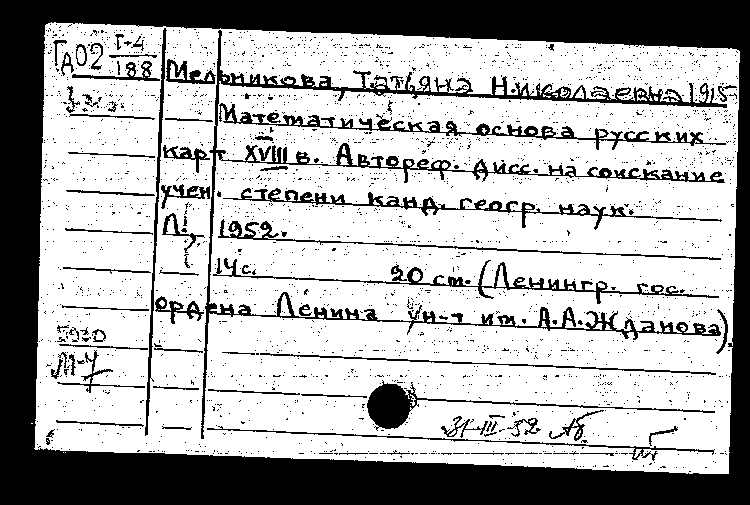 Гд02 Г-4
188
Мельникова, Татьяна Николаевна 1915
Математическая основа русских
карт XVIII в. Автореф. дисс. на соискание
учен. степени канд. геогр. наук.
Л., 1952.
14 с. 20 см. (Ленингр. гос.
ордена Ленина ун-т им. А.А. Жданова).
М-4
31 III 52